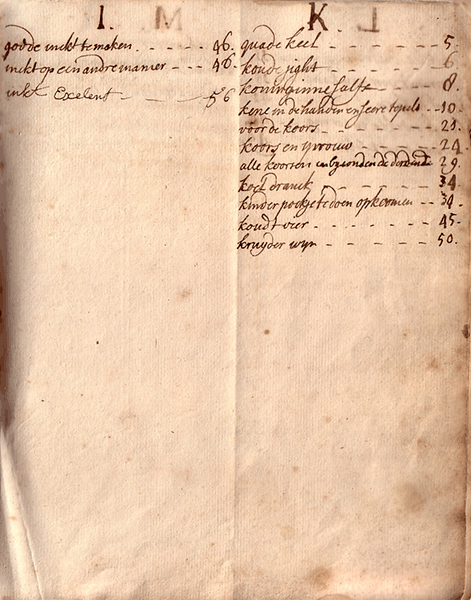 I.
goede inckt te maken 46.
inckt op een andre manier 46.
inkt Exelent 56
K
quade keel 5.
koude jight 6
koninginne salfe 8.
kene in de handen en seere tepels 10
voor de koors 21.
koors en 24.
alle koorsen de derdendaegse 29.
koel dranck 34
kinder pockjes te doen opkoomen 34.
koudt vier 45.
kruyder wyn 50.